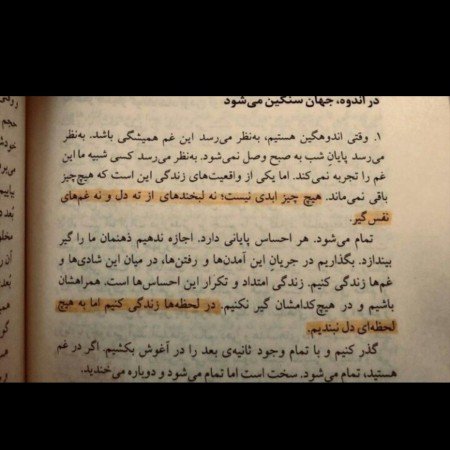 در اندوه، جهان سنگین می‌شود
۱. وقتی اندوهگین هستیم، به‌نظر می‌رسد این غم همیشگی باشد. به‌نظر
می‌رسد پایانِ شب به صبح وصل نمی‌شود. به‌نظر می‌رسد کسی شبیه ما این
غم را تجربه نمی‌کند. اما یکی از واقعیت‌های زندگی این است که هیچ‌چیز
باقی نمی‌ماند. هیچ چیز ابدی نیست؛ نه لبخندهای از ته دل و نه غم‌های
نفس‌گیر.
تمام می‌شود. هر احساس پایانی دارد. اجازه ندهیم ذهنمان ما را گیر
بیندازد. بگذاریم در جریانِ این آمدن‌ها و رفتن‌ها، در میان این شادی‌ها و
غم‌ها زندگی کنیم. زندگی امتداد و تکرار این احساس‌ها است. همراهشان
باشیم و در هیچ‌کدامشان گیر نکنیم. در لحظه‌ها زندگی کنیم اما به هیچ
لحظه‌ای دل نبندیم.
گذر کنیم و با تمام وجود ثانیه‌ی بعد را در آغوش بکشیم. اگر در غم
هستید، تمام می‌شود. سخت است اما تمام می‌شود و دوباره می‌خندید.
حجم